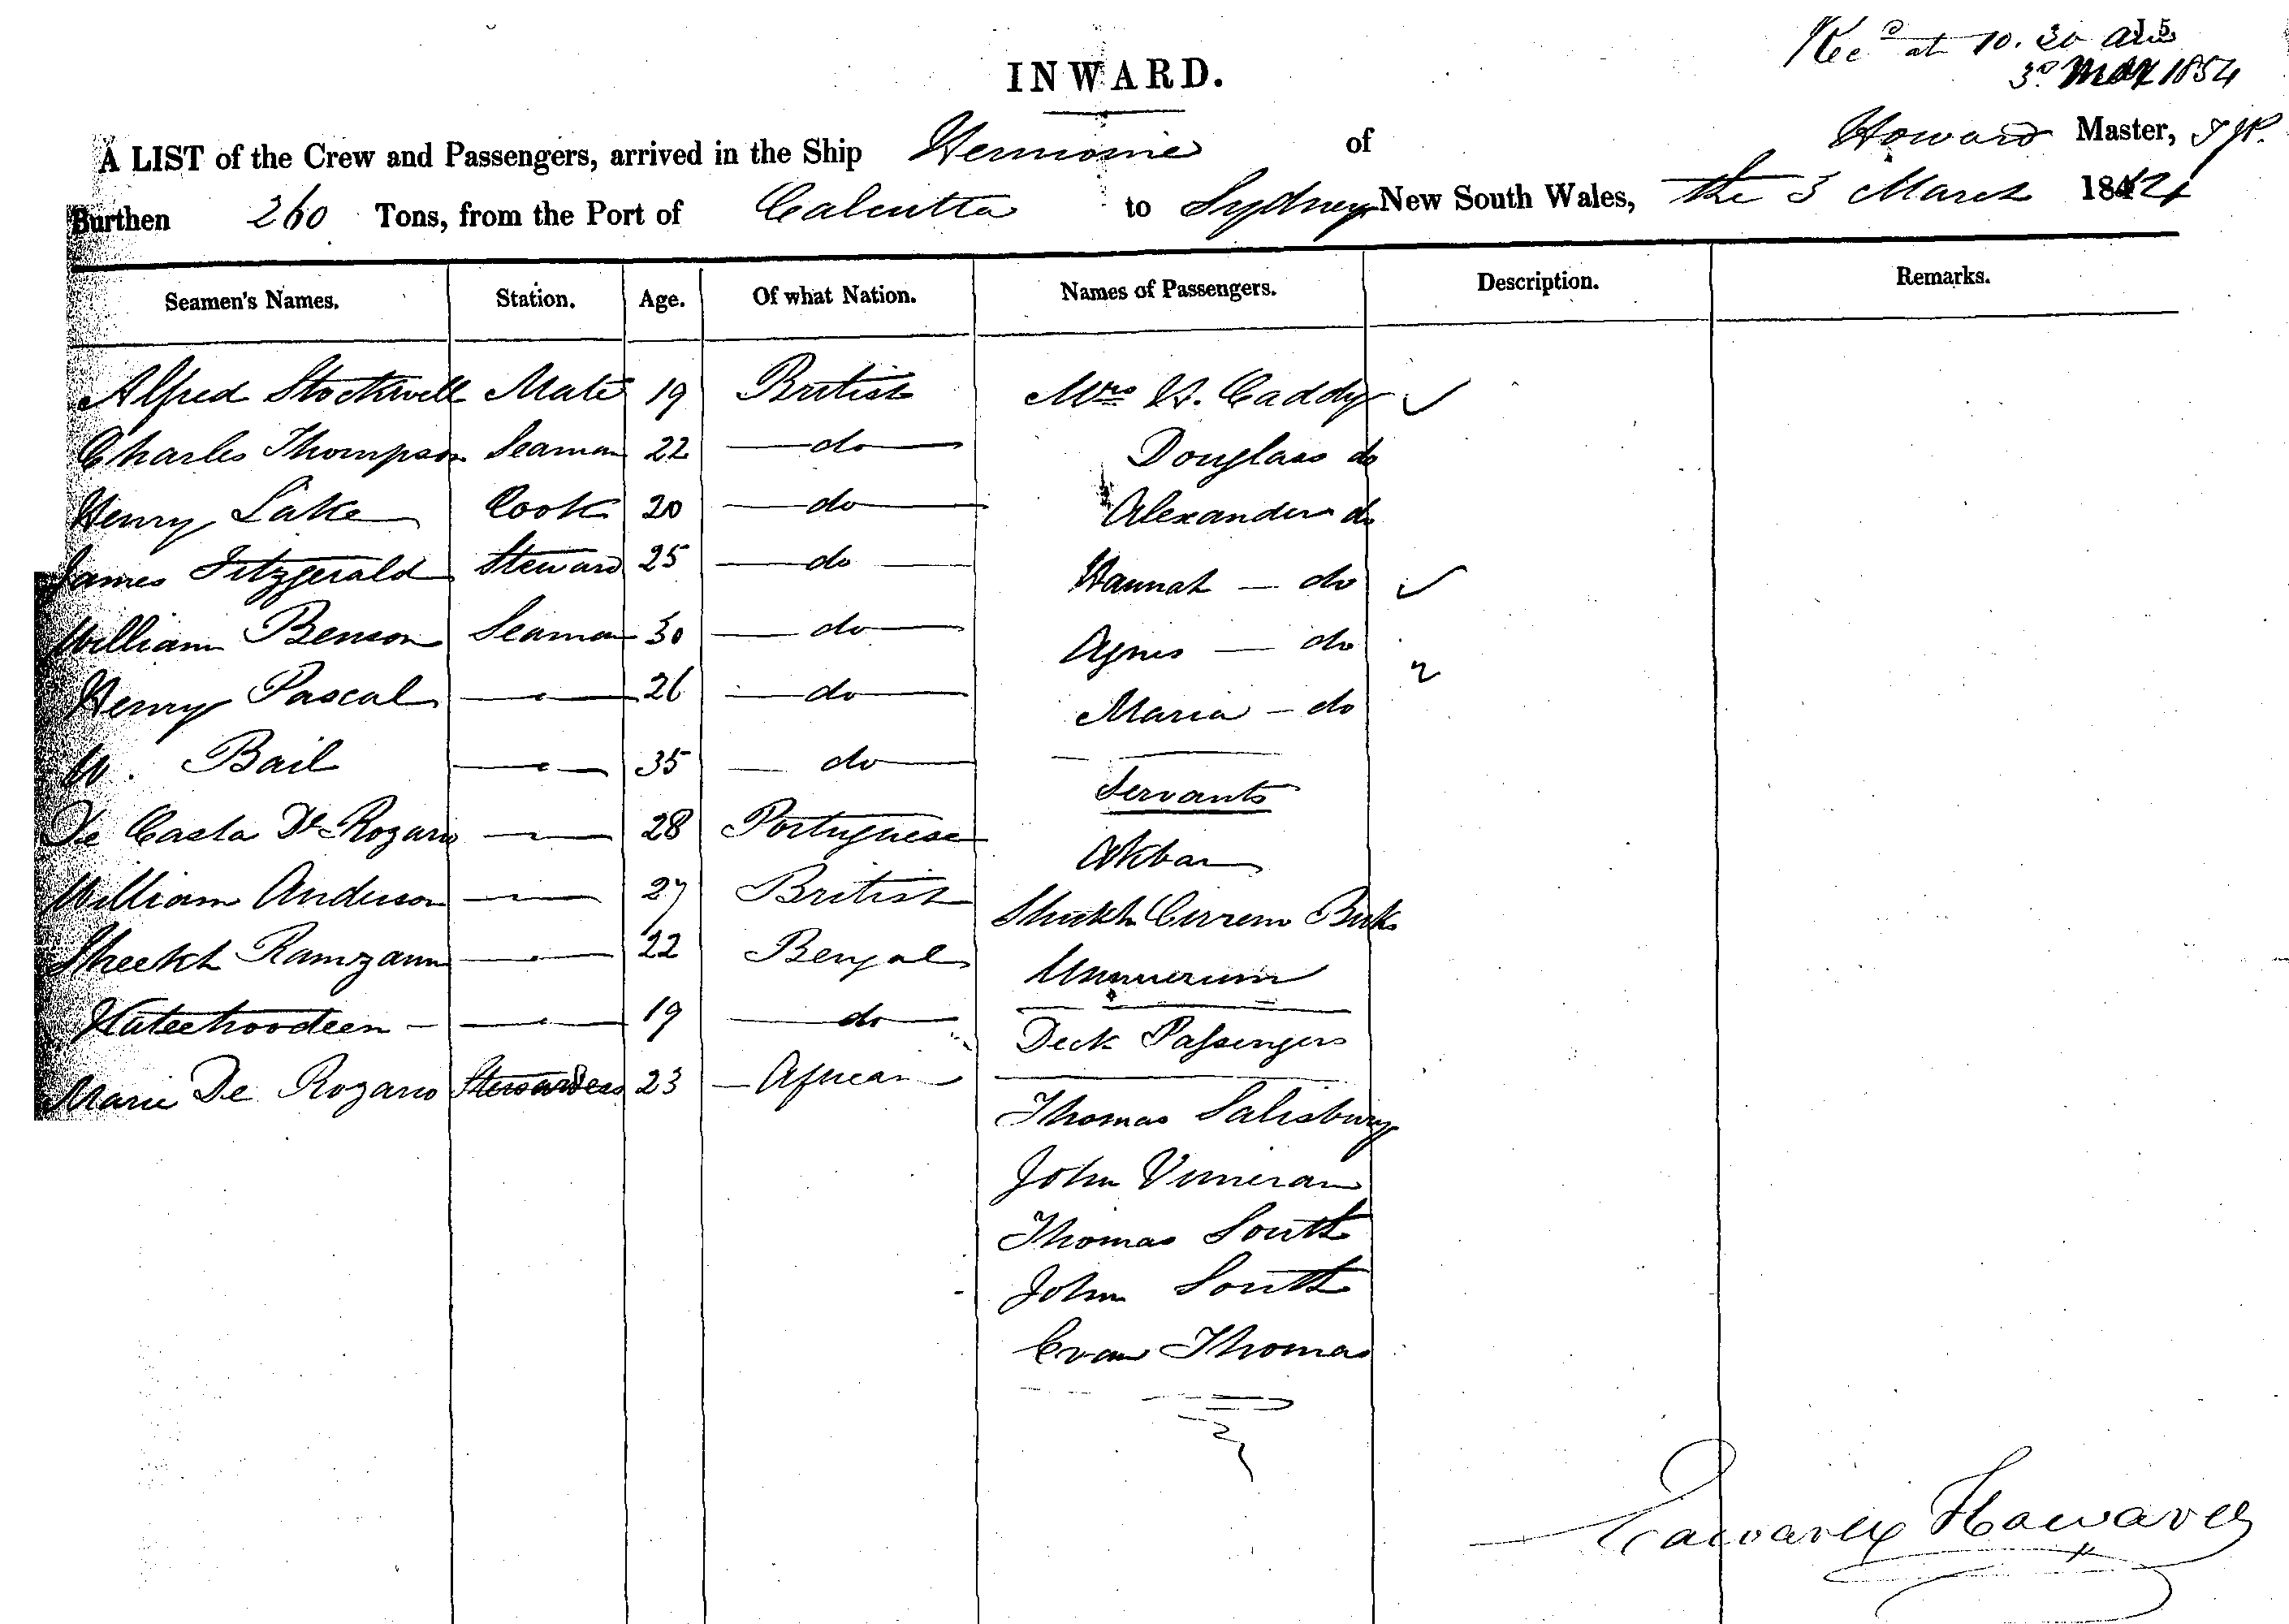 Rec^d at 10.30 am
3^d Mar 1854
INWARD.
A LIST of the Crew and Passengers, arrived in the Ship Hermione of Howard Master,
Burthen 260 Tons, from the Port of Calcutta to Sydney New South Wales, the 3 March 18
Seamen's Names. Station. Age. Of what Nation. Names of Passengers. Description. Remarks.
Alfred Stockwell Mate 19 British Mrs H. Caddy ✓
Charles Thompson Seaman 22 do Douglass do
Henry Lake Cook 20 do Alexander do
James Fitzgerald Steward 25 do Hannah - do ✓
William Benson Seaman 30 do Agnes - do
Henry Pascal 26 do Maria - do
W. Bail 35 do Servants
De Casta De Rozario 28 Portuguese Akbar
William Anderson 27 British
Sheekh Ramzaun 22 Bengal
19 do Deck Passengers
Marie De Rozario Stewardess 23 African
Thomas Salisbury
John
Thomas South
John South
Evan Thomas
Edward Howard